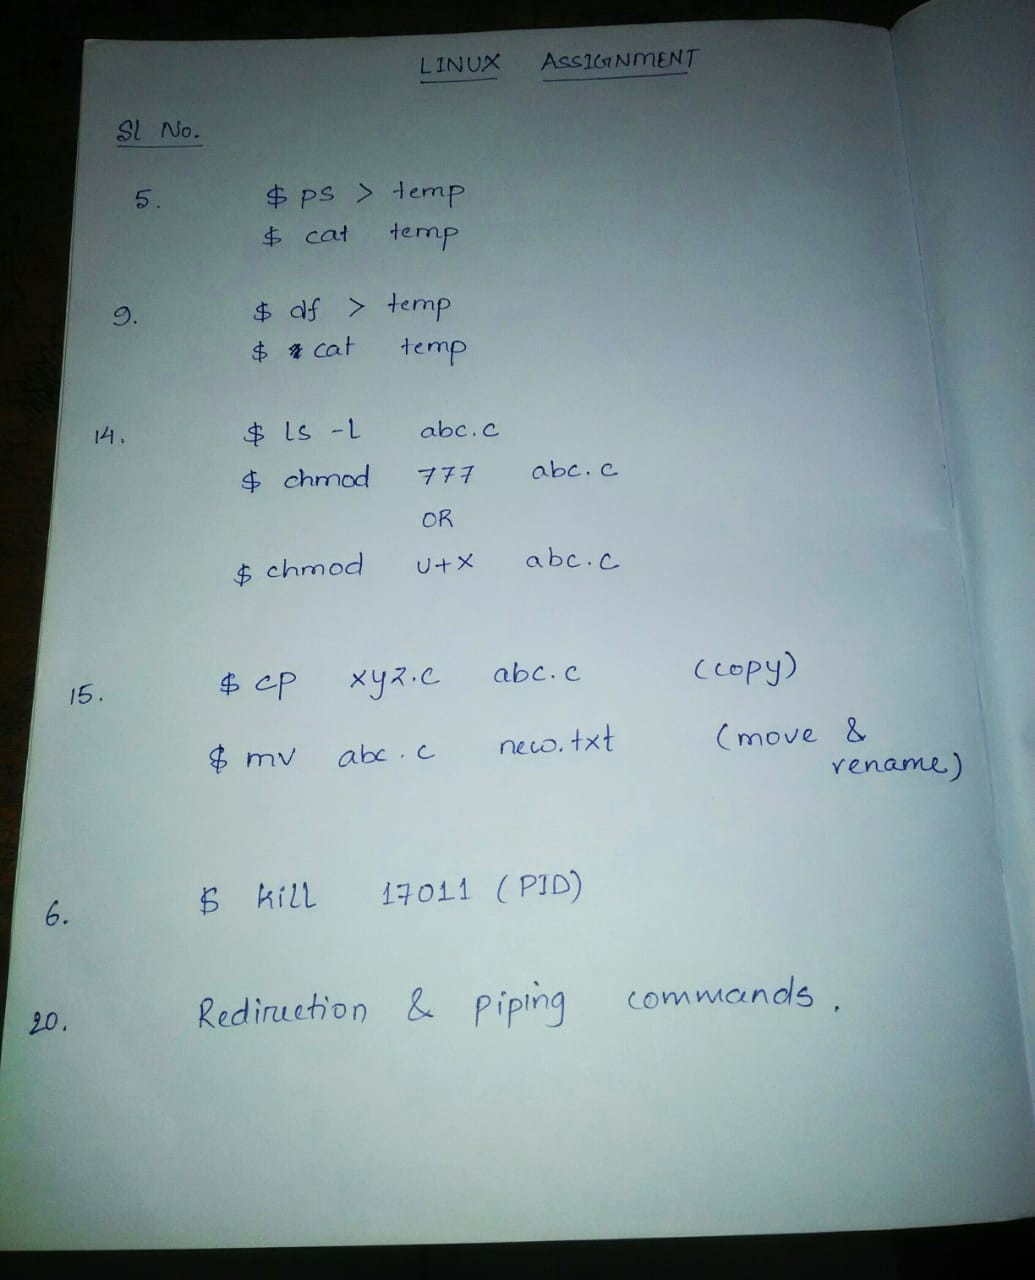 LINUX ASSIGNMENT
Sl No.
5. $ ps > temp
$ cat temp
9. $ df > temp
$ cat temp
14. $ ls -l abc.c
$ chmod 777 abc.c
OR
$ chmod u+x abc.c
15. $ cp xyz.c abc.c (copy)
$ mv abc.c new.txt (move &
rename)
6. $ kill 17011 (PID)
20. Redirection & piping commands.